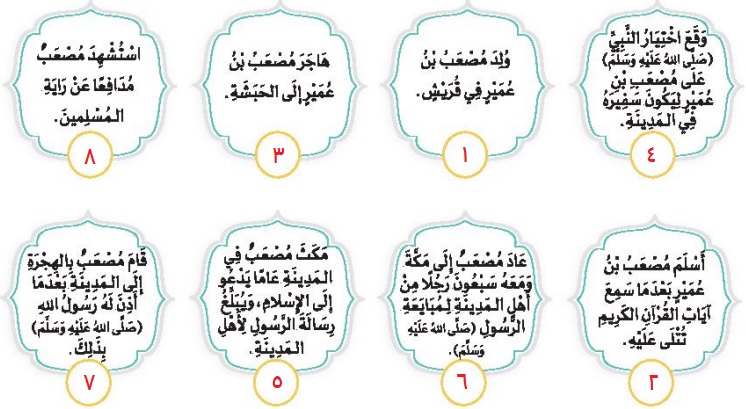 وَقَعَ اخْتِيَارُ النَّبِيِّ
(صَلَّى اللهُ عَلَيْهِ وَسَلَّمَ)
عَلَى مُصْعَبِ بْنِ
عُمَيْرٍ لِيَكُونَ سَفِيرَهُ
فِي المَدِينَةِ.
٤
وُلِدَ مُصْعَبُ بْنُ
عُمَيْرٍ فِي قُرَيْشٍ.
١
هَاجَرَ مُصْعَبُ بْنُ
عُمَيْرٍ إِلَى الحَبَشَةِ.
٣
اسْتُشْهِدَ مُصْعَبٌ
مُدَافِعًا عَنْ رَايَةِ
المُسْلِمِينَ.
٨
أَسْلَمَ مُصْعَبُ بْنُ
عُمَيْرٍ بَعْدَمَا سَمِعَ
آيَاتِ القُرْآنِ الكَرِيمِ
تُتْلَى عَلَيْهِ.
٢
عَادَ مُصْعَبٌ إِلَى مَكَّةَ
وَمَعَهُ سَبْعُونَ رَجُلًا مِنْ
أَهْلِ المَدِينَةِ لِمُبَايَعَةِ
الرَّسُولِ (صَلَّى اللهُ عَلَيْهِ
وَسَلَّمَ).
٦
مَكَثَ مُصْعَبٌ فِي
المَدِينَةِ عَامًا يَدْعُو
إِلَى الإِسْلَامِ، وَيُبَلِّغُ
رِسَالَةَ الرَّسُولِ لِأَهْلِ
المَدِينَةِ.
٥
قَامَ مُصْعَبٌ بِالهِجْرَةِ
إِلَى المَدِينَةِ بَعْدَمَا
أَذِنَ لَهُ رَسُولُ اللهِ
(صَلَّى اللهُ عَلَيْهِ وَسَلَّمَ)
بِذَلِكَ.
٧